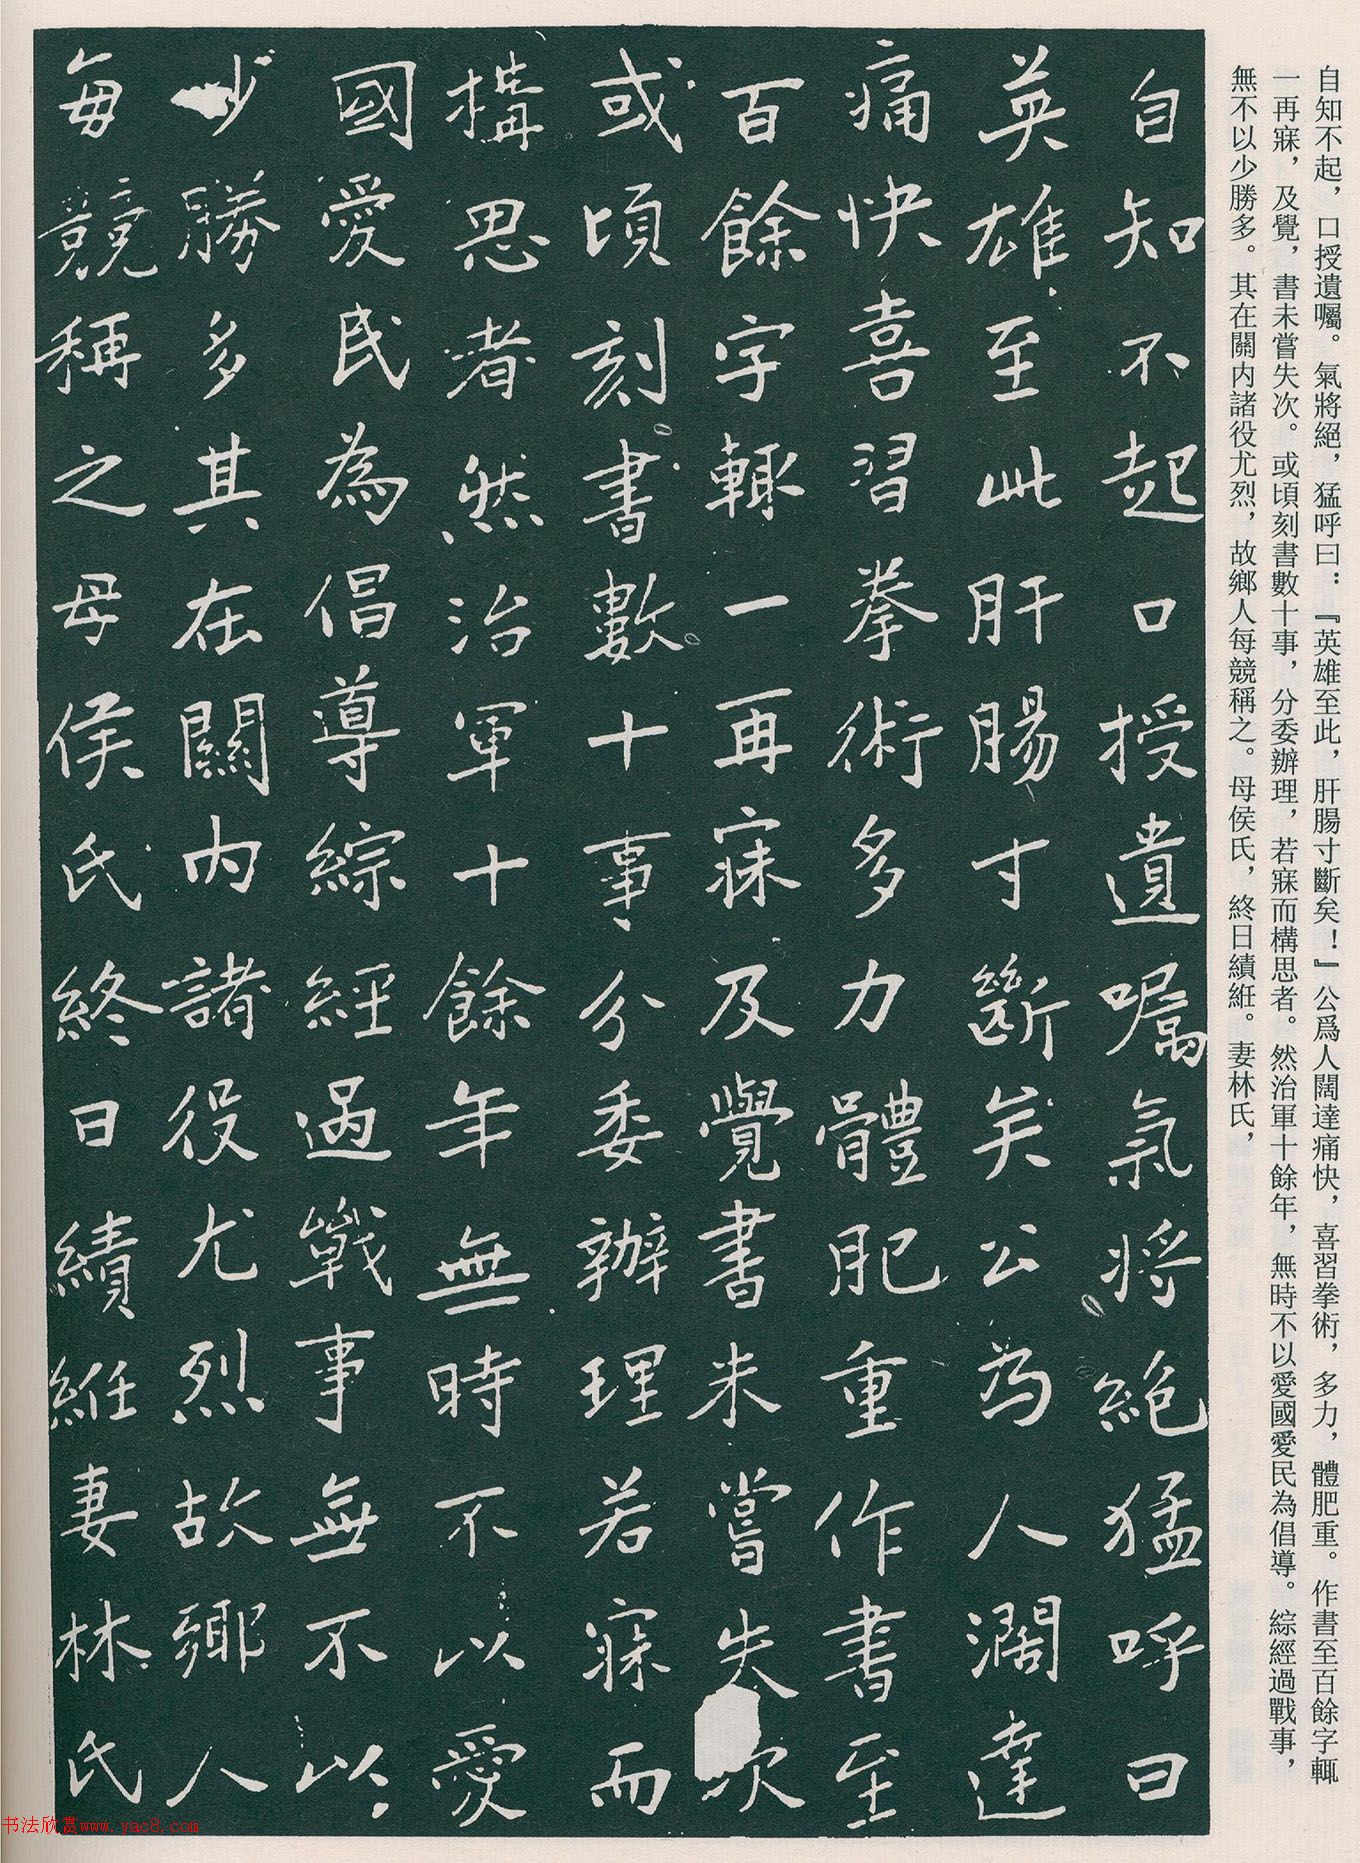 自知不起，口授遺囑。氣將絕，猛呼曰：『英雄至此，肝腸寸斷矣！』公爲人闊達痛快，喜習拳術，多力，體肥重。作書至百餘字輒
一再寐，及覺，書未嘗失次。或頃刻書數十事，分委辦理，若寐而構思者。然治軍十餘年，無時不以愛國愛民為倡導。綜經過戰事，
無不以少勝多。其在關内諸役尤烈，故鄉人每競稱之。母侯氏，終日績絍。妻林氏，
自知不起口授遺囑氣將絕猛呼曰
英雄至此肝腸寸斷矣公为人闊達
痛快喜習拳術多力體肥重作書至
百餘字輒一再寐及覺書未嘗失次
或頃刻書數十事分委辦理若寐而
構思者然治軍十餘年無時不以愛
國愛民為倡導綜經過戰事無不以
少勝多其在關内諸役尤烈故鄉人
每競稱之母侯氏終日績絍妻林氏
书法欣赏www.yac8.com